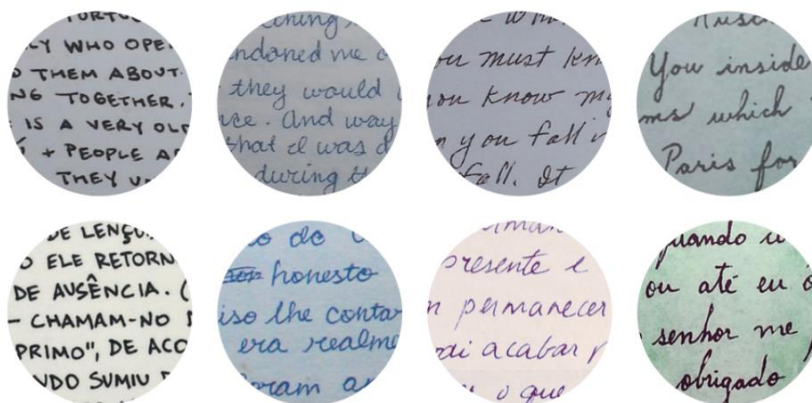 TORTU
LY WHO OPE
O THEM ABOUT
NG TOGETHER.
IS A VERY OLD
+ PEOPLE A
THEY U
ching
ndoned me
they would
ce. And way
that I was
during th
ou must kn
you know my
n you fall i
fall. It
You inside
ms which
Paris for
DE LENÇU
O ELE RETORN
DE AUSÊNCIA. (
- CHAMAM-NO
PRIMO", DE ACO
NDO SUMIU
o do
honesto
iso lhe contar
era realme
oram a
presente e
m permanecer
odi acabar p
u o que
quando u
ou até eu
senhor me
obrigado